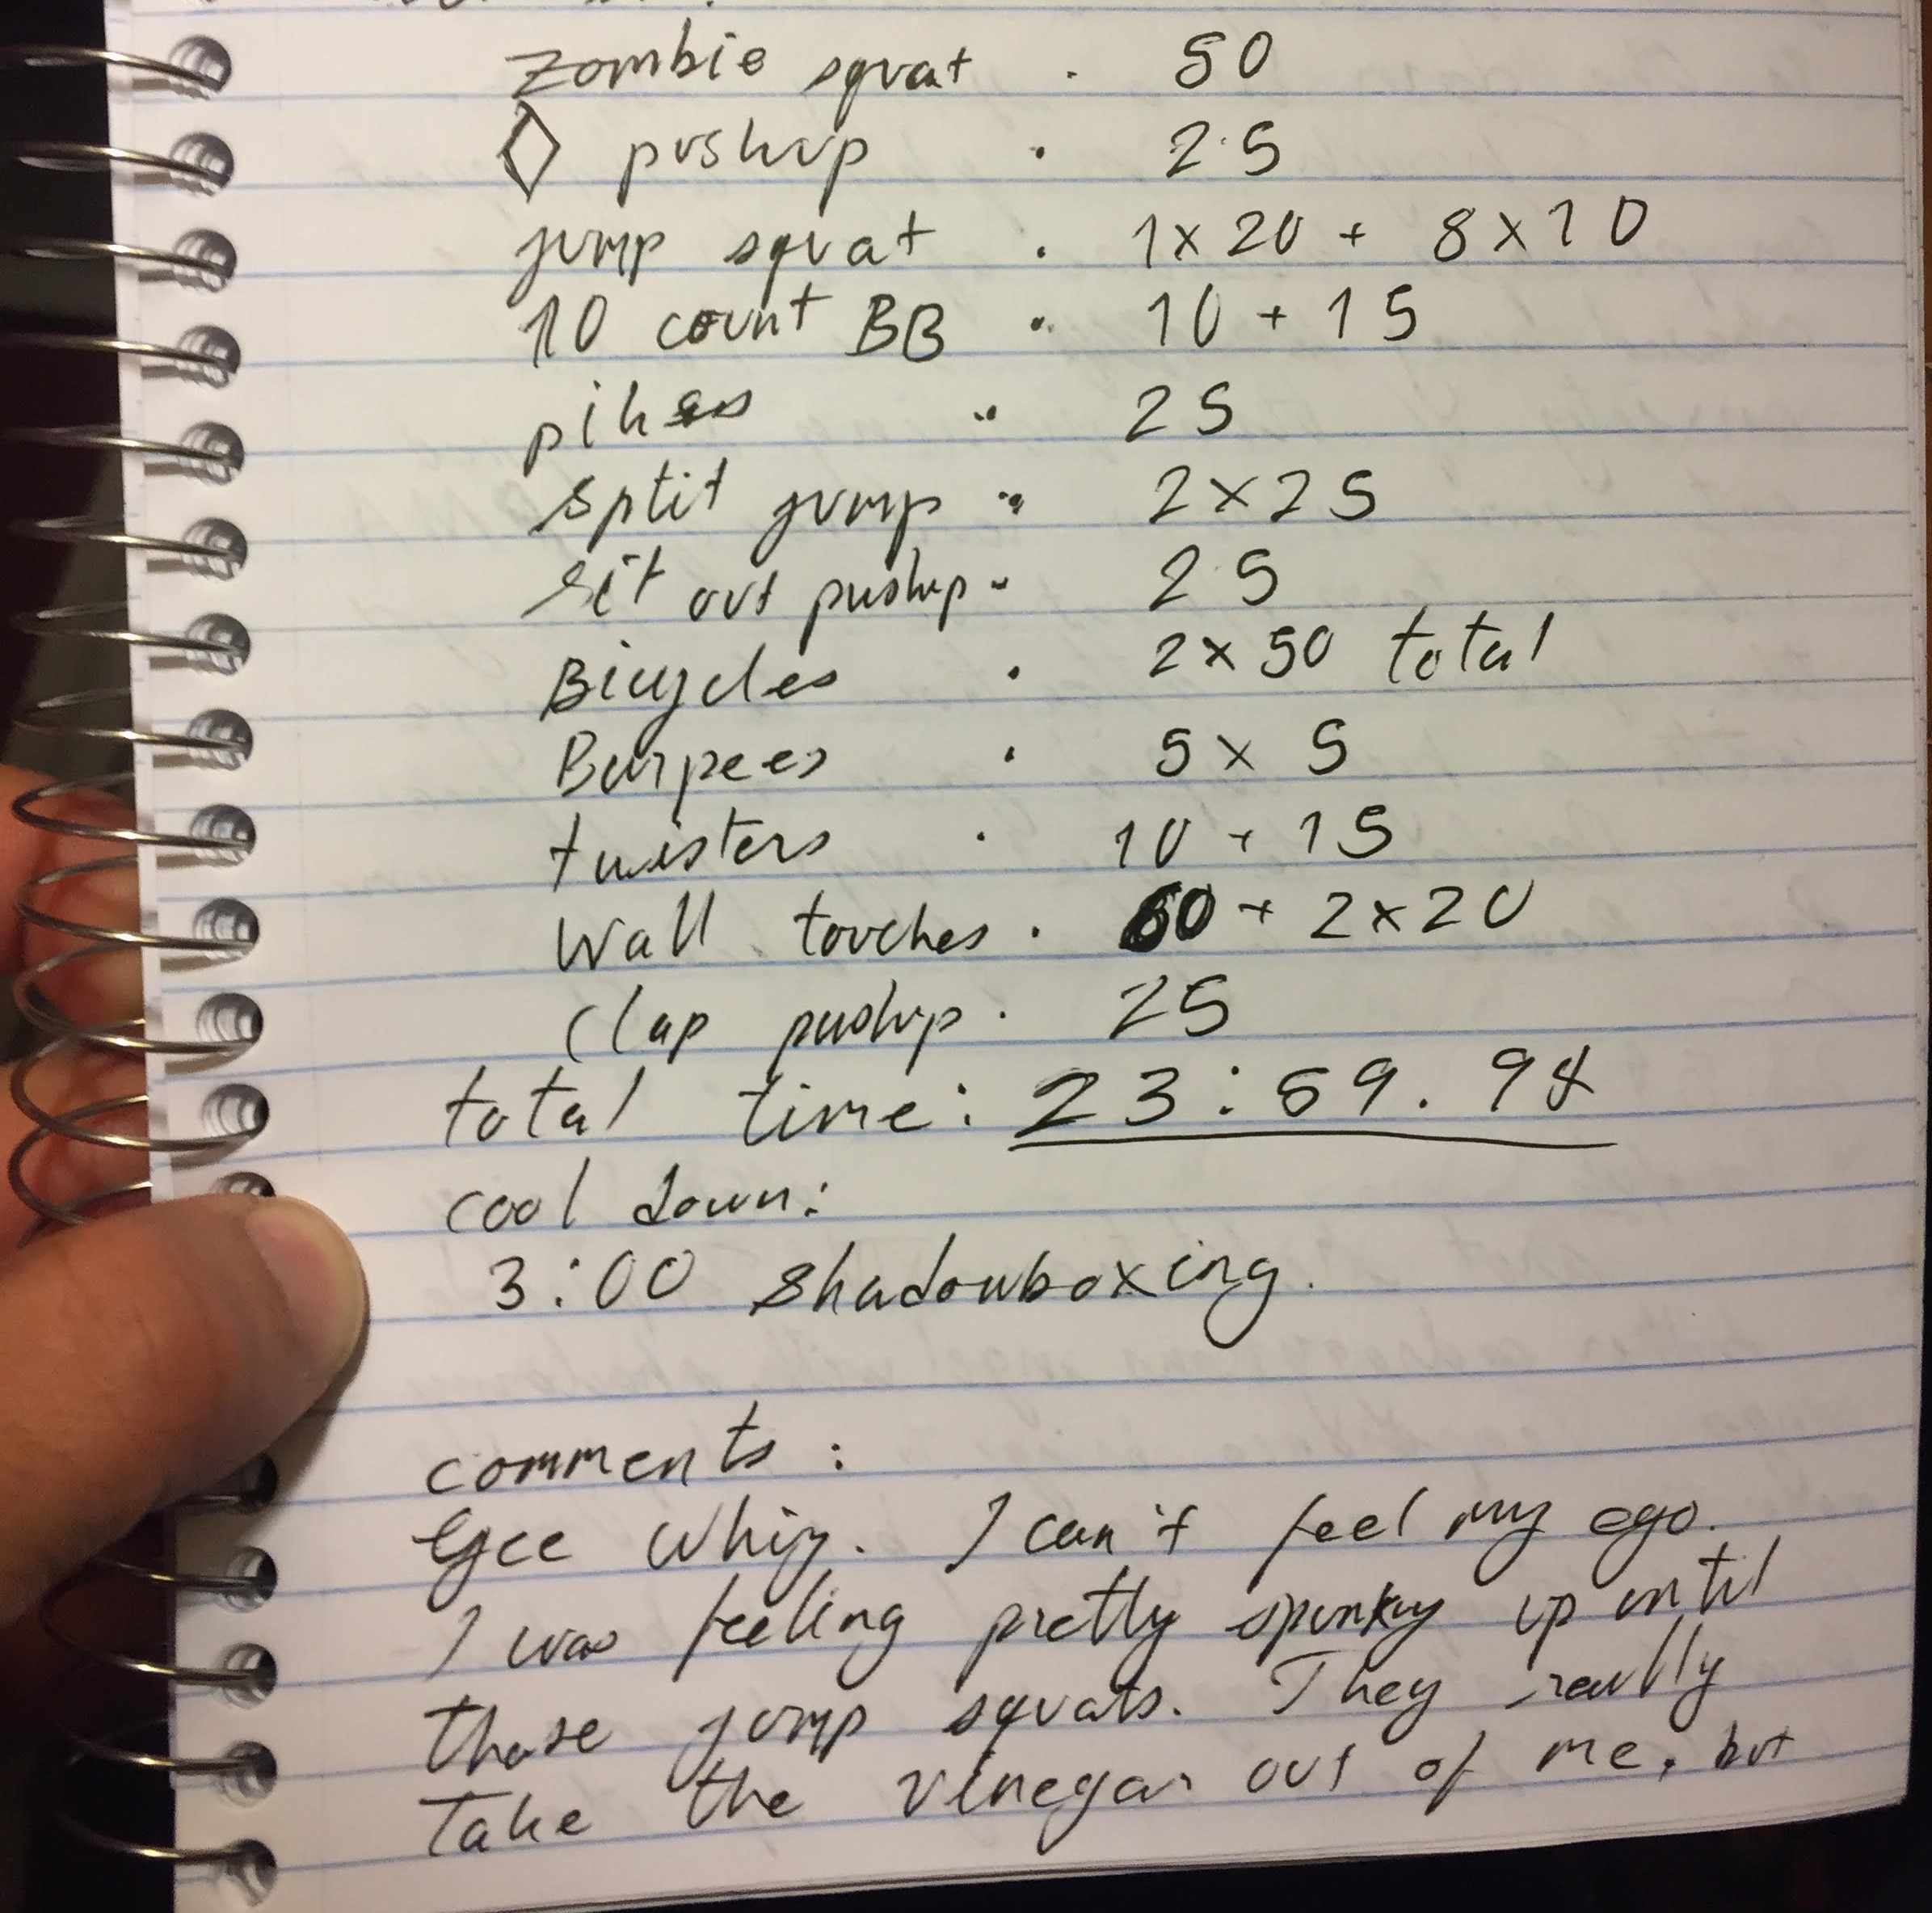 Zombie squat . 50
◊ pushup . 25
jump squat . 1x20 + 8x10
10 count BB . 10 + 15
pikes . 25
split jump . 2x25
sit out pushup . 25
Bicycles . 2x50 total
Burpees . 5x5
twisters . 10 + 15
Wall touches . 60 + 2x20
Clap pushup . 25
total time: 23:59.98
cool down:
3:00 shadowboxing.
comments:
Gee Whiz. I can't feel my ego.
I was feeling pretty spunky up until
those jump squats. They really
take the vinegar out of me, but